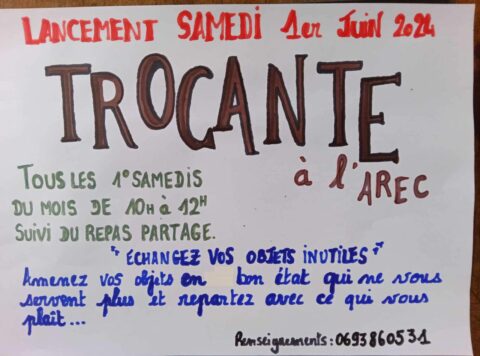 LANCEMENT SAMEDI 1er JUIN 2024
TROCANTE
à l'AREC
TOUS LES 1° SAMEDIS
DU MOIS DE 10H à 12H
SUIVI DU REPAS PARTAGE.
"ÉCHANGEZ VOS OBJETS INUTILES"
Amenez vos objets en bon état qui ne vous
servent plus et repartez avec ce qui vous
plaît...
Renseignements: 0693860531